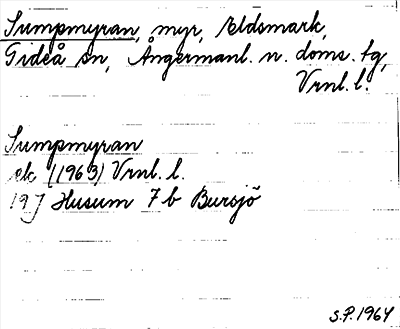 Sumpmyran, myr, Eldsmark,
Gideå sn, Ångermanl. n. doms. tg,
Vrnl. l.
Sumpmyran
ek (1963) Vrnl. l.
19J Husum 7b Bursjö
S.P. 1964